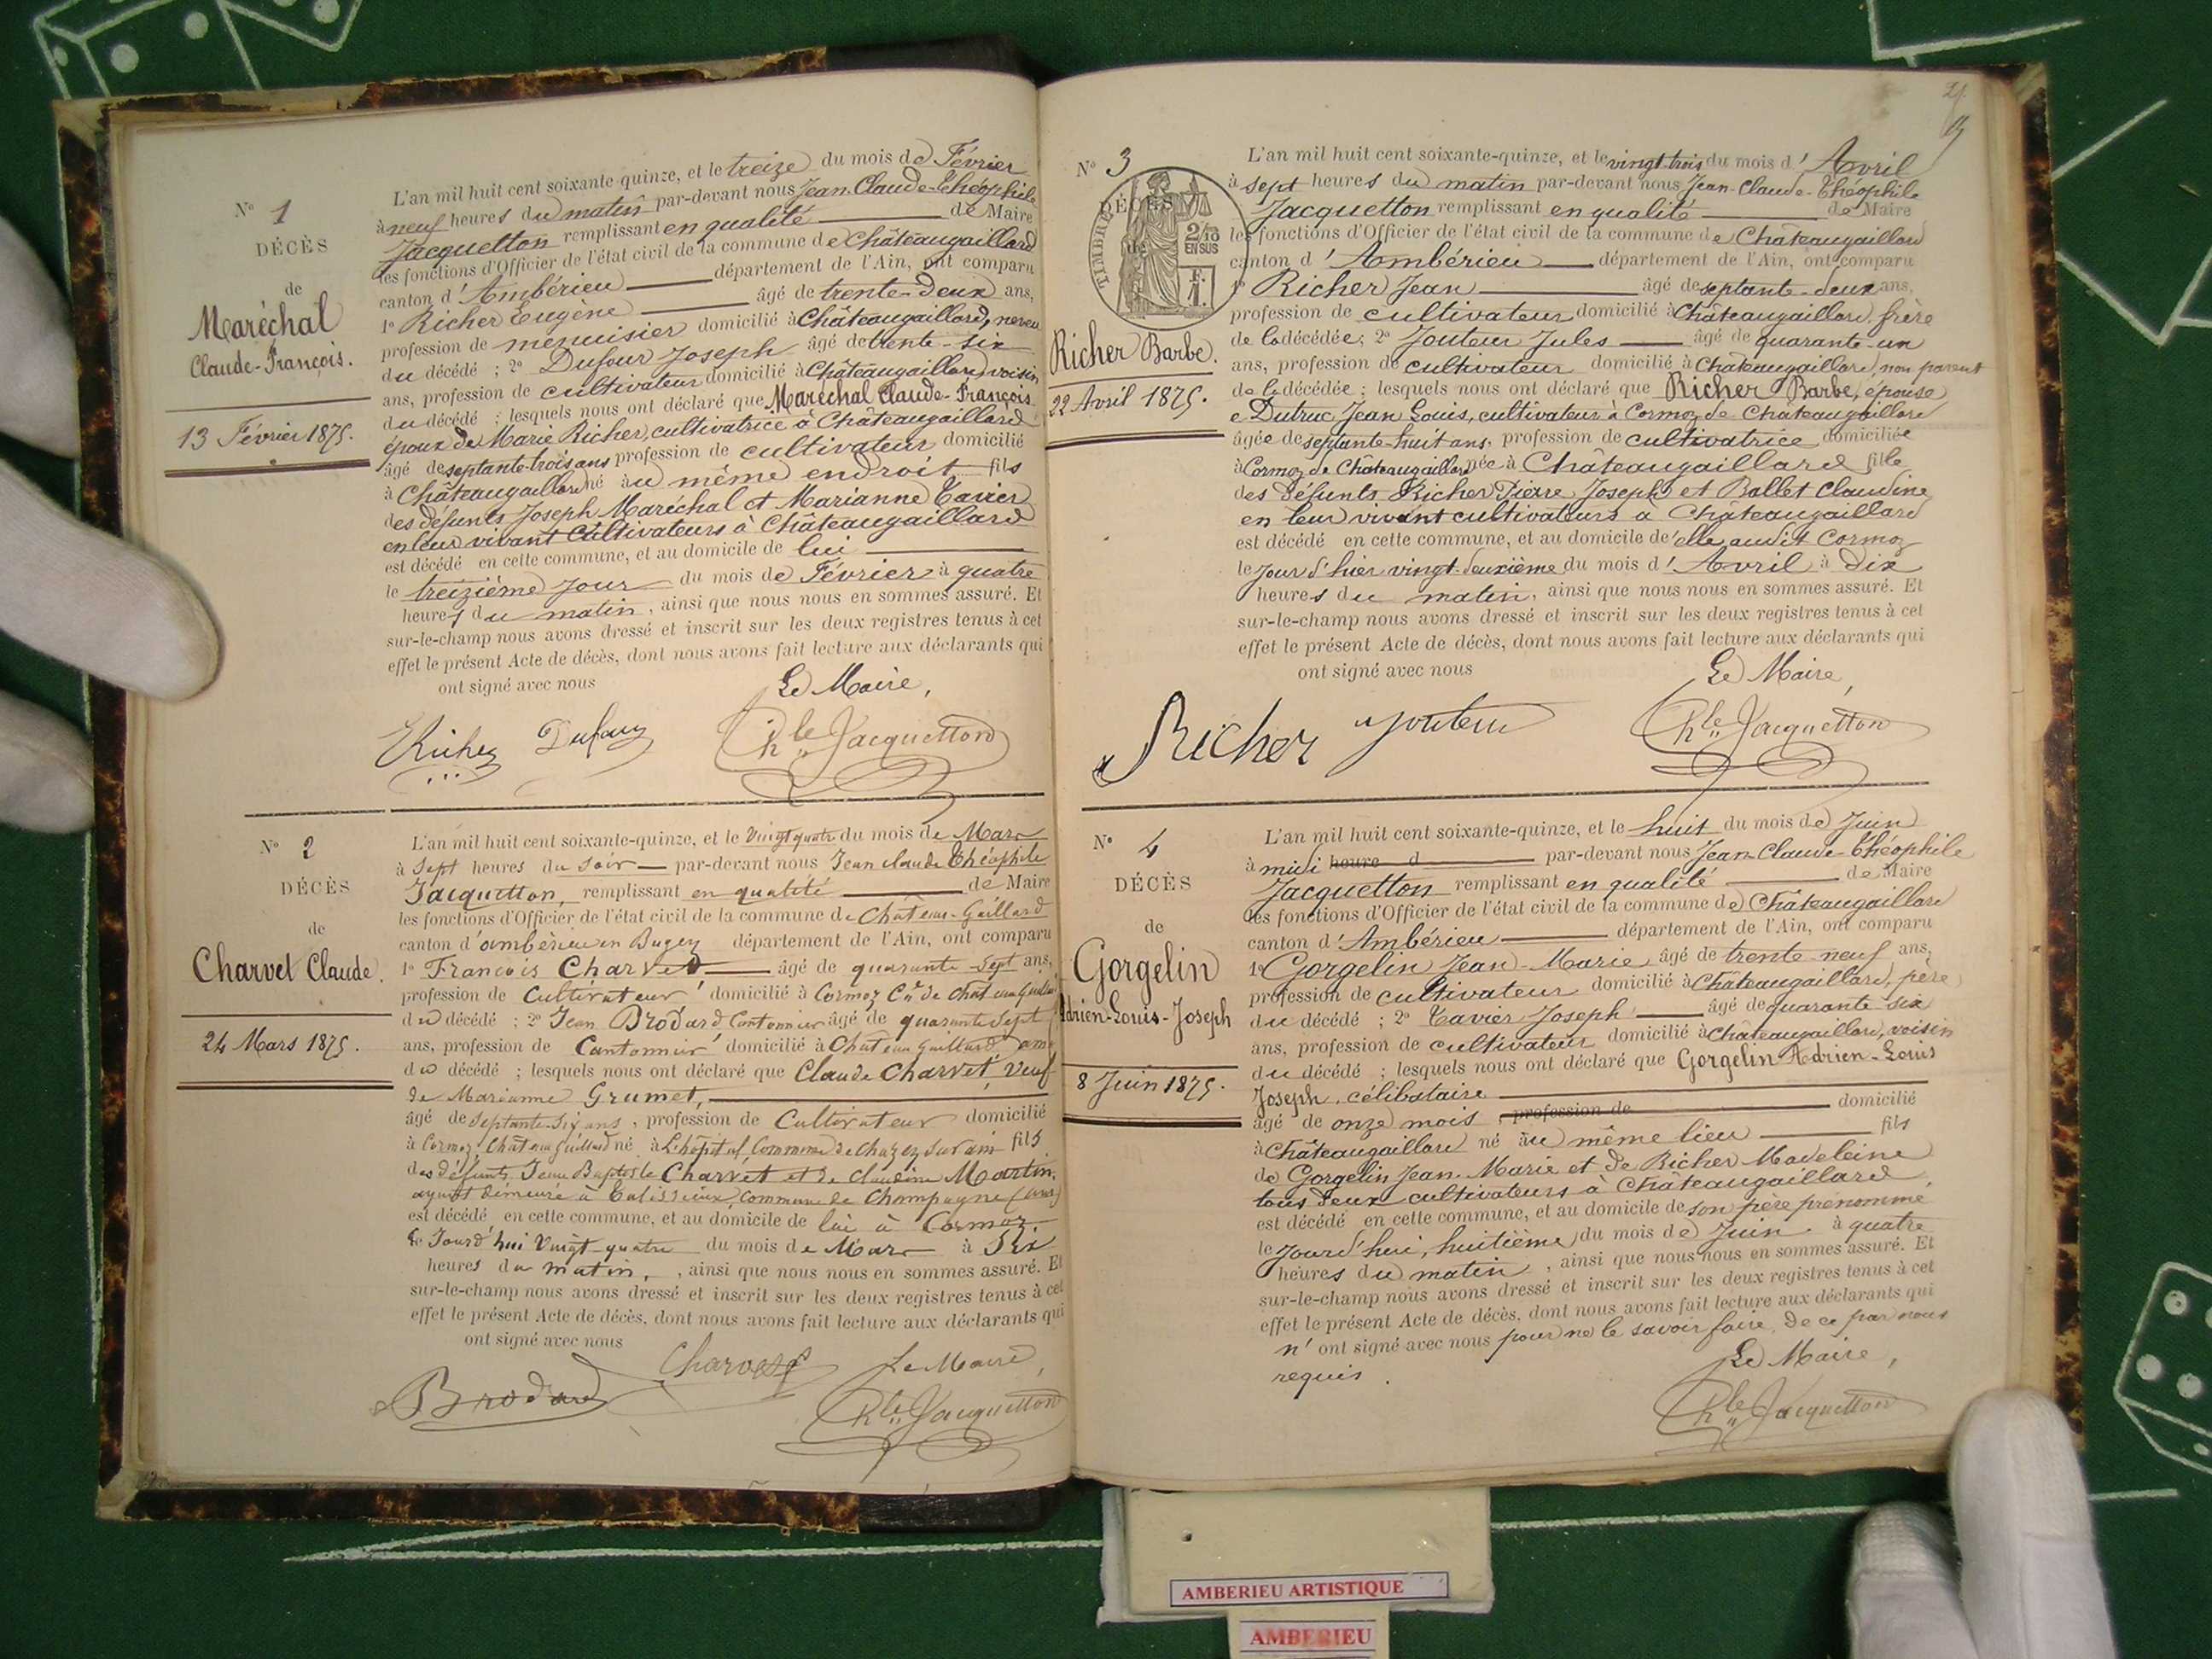 N° 1
DÉCÈS
de
Maréchal
Claude-François.
13 Février 1875.
L'an mil huit cent soixante-quinze, et le treize du mois de Février
à neuf heures du matin par-devant nous Jean-Claude-Théophile
Jacquetton remplissant en qualité de Maire
les fonctions d'Officier de l'état civil de la commune de Châteaugaillard
canton d'Ambérieu département de l'Ain, ont comparu
1° Richer Eugène âgé de trente-deux ans,
profession de menuisier domicilié à Châteaugaillard, neveu
du décédé ; 2° Dufour Joseph âgé de trente-six
ans, profession de cultivateur domicilié à Châteaugaillard voisin
du décédé ; lesquels nous ont déclaré que Maréchal Claude-François
époux de Marie Richer, cultivatrice à Châteaugaillard
âgé de septante-trois ans profession de cultivateur domicilié
à Châteaugaillard né au même endroit fils
des défunts Joseph Maréchal et Marianne Tavier
en leur vivant Cultivateurs à Châteaugaillard
est décédé en cette commune, et au domicile de lui
le treizième jour du mois de Février à quatre
heures du matin, ainsi que nous nous en sommes assuré. Et
sur-le-champ nous avons dressé et inscrit sur les deux registres tenus à cet
effet le présent Acte de décès, dont nous avons fait lecture aux déclarants qui
ont signé avec nous
Le Maire,
Richer Dufour Jacquetton
N° 2
DÉCÈS
de
Charvet Claude.
24 Mars 1875.
L'an mil huit cent soixante-quinze, et le vingt quatre du mois de Mars
à Sept heures du soir par-devant nous Jean claude Théophile
Jacquetton, remplissant en qualité de Maire
les fonctions d'Officier de l'état civil de la commune de Château-Gaillard
canton d'ambérieu en Bugey département de l'Ain, ont comparu
1° François Charvet âgé de quarante-Sept ans,
profession de Cultivateur domicilié à Cormoz Cne de Château Gaillard
du décédé ; 2° Jean Brodard Cantonnier âgé de quarante Sept
ans, profession de Cantonnier domicilié à Château Gaillard ami
du décédé ; lesquels nous ont déclaré que Claude Charvet, Veuf
de Marianne Grumet,
âgé de septante-Six ans, profession de Cultivateur domicilié
à Cormoz, Château Gaillard né à L'hôpital Commune de Chazey sur ain fils
des défunts Jean Baptiste Charvet et de Claudine Martin,
ayant démeuré à Commune de Champagne
est décédé en cette commune, et au domicile de lui à Cormoz.
le Jourd'hui Vingt-quatre du mois de Mars à Six
heures du matin, , ainsi que nous nous en sommes assuré. Et
sur-le-champ nous avons dressé et inscrit sur les deux registres tenus à cet
effet le présent Acte de décès, dont nous avons fait lecture aux déclarants qui
ont signé avec nous
Brodard Charvet Le Maire,
Jacquetton
N° 3
DÉCÈS
de
TIMBRE
2/10
EN SUS
F.
1.
Richer Barbe.
22 Avril 1875.
L'an mil huit cent soixante-quinze, et le vingt trois du mois d'Avril
à sept heures du matin par-devant nous Jean-Claude-Théophile
Jacquetton remplissant en qualité de Maire
les fonctions d'Officier de l'état civil de la commune de Châteaugaillard
canton d'Ambérieu département de l'Ain, ont comparu
1° Richer Jean âgé de septante-deux ans,
profession de cultivateur domicilié à Châteaugaillard, frère
de la décédée; 2° Jouteur Jules âgé de quarante-un
ans, profession de cultivateur domicilié à Châteaugaillard, non parent
de la décédée ; lesquels nous ont déclaré que Richer Barbe, épouse
e Dutruc Jean Louis, cultivateur à Cormoz de Chateaugaillard
âgée de septante-huit ans, profession de cultivatrice domiciliée
à Cormoz de Châteaugaillard née à Châteaugaillard fille
des défunts Richer Pierre Joseph et Ballet Claudine
en leur vivant cultivateurs à Châteaugaillard
est décédé en cette commune, et au domicile d'elle audit Cormoz
le Jour d'hier vingt-deuxième du mois d'Avril à dix
heures du matin, ainsi que nous nous en sommes assuré. Et
sur-le-champ nous avons dressé et inscrit sur les deux registres tenus à cet
effet le présent Acte de décès, dont nous avons fait lecture aux déclarants qui
ont signé avec nous
Le Maire,
Richer Jouteur Jacquetton
N° 4
DÉCÈS
de
Gorgelin
Adrien-Louis-Joseph
8 Juin 1875.
L'an mil huit cent soixante-quinze, et le huit du mois de Juin
à midi heure d par-devant nous Jean-Claude-Théophile
Jacquetton remplissant en qualité de Maire
les fonctions d'Officier de l'état civil de la commune de Châteaugaillard
canton d'Ambérieu département de l'Ain, ont comparu
1° Gorgelin Jean-Marie âgé de trente-neuf ans,
profession de cultivateur domicilié à Châteaugaillard, père
du décédé ; 2° Tavier Joseph âgé de quarante-six
ans, profession de cultivateur domicilié à Châteaugaillard, voisin
du décédé ; lesquels nous ont déclaré que Gorgelin Adrien-Louis
Joseph, célibataire
âgé de onze mois, profession de domicilié
à Châteaugaillard né au même lieu fils
de Gorgelin Jean-Marie et de Richer Madeleine
tous deux cultivateurs à Châteaugaillard,
est décédé en cette commune, et au domicile de son père prénommé
le Jourd'hui, huitième du mois de Juin à quatre
heures du matin, ainsi que nous nous en sommes assuré. Et
sur-le-champ nous avons dressé et inscrit sur les deux registres tenus à cet
effet le présent Acte de décès, dont nous avons fait lecture aux déclarants qui
n'ont signé avec nous pour ne le savoir faire, de ce par nous
requis.
Le Maire,
Jacquetton
AMBERIEU ARTISTIQUE
AMBERIEU